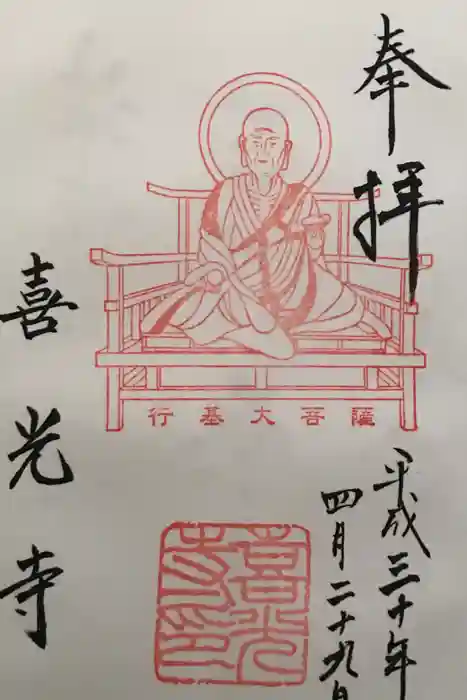 奉拝
平成三十年
四月二十九日
行基大菩薩
喜光寺
喜光寺印